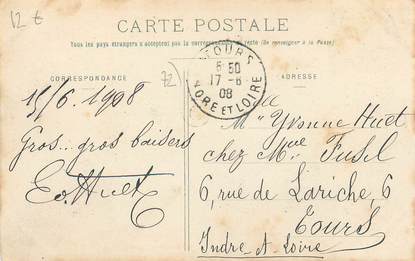 12 €
CARTE POSTALE
Tous les pays étrangers n'acceptent pas la correspondance au recto (Se renseigner à la Poste)
CORRESPONDANCE
ADRESSE
72
TOURS
5 50
17 - 6
08
INDRE ET LOIRE
15/6 1908
Gros... gros baisers
Ed. Huet
Mlle Yvonne Huet
chez Mme Fusil
6, rue de Lariche, 6
Tours
Indre-et-Loire